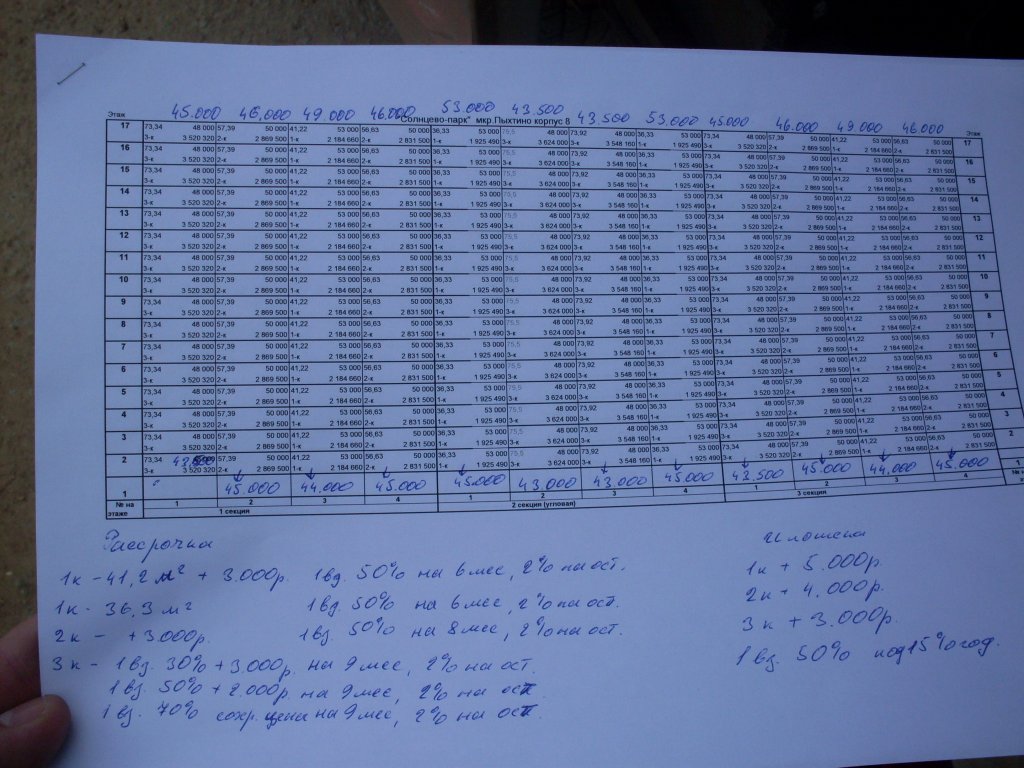 45.000 46,000 49.000 46.000 53.000 43.500 43.500 53.000 45.000 46.000 49.000 46.000
Этаж "Солнцево-парк" мкр.Пыхтино корпус 8 Этаж
17 73,34 48 000 57,39 50 000 41,22 53 000 56,63 50 000 36,33 53 000 75,5 48 000 73,92 48 000 36,33 53 000 73,34 48 000 57,39 50 000 41,22 53 000 56,63 50 000 17
3-к 3 520 320 2-к 2 869 500 1-к 2 184 660 2-к 2 831 500 1-к 1 925 490 3-к 3 624 000 3-к 3 548 160 1-к 1 925 490 3-к 3 520 320 2-к 2 869 500 1-к 2 184 660 2-к 2 831 500
16 73,34 48 000 57,39 50 000 41,22 53 000 56,63 50 000 36,33 53 000 75,5 48 000 73,92 48 000 36,33 53 000 73,34 48 000 57,39 50 000 41,22 53 000 56,63 50 000 16
3-к 3 520 320 2-к 2 869 500 1-к 2 184 660 2-к 2 831 500 1-к 1 925 490 3-к 3 624 000 3-к 3 548 160 1-к 1 925 490 3-к 3 520 320 2-к 2 869 500 1-к 2 184 660 2-к 2 831 500
15 73,34 48 000 57,39 50 000 41,22 53 000 56,63 50 000 36,33 53 000 75,5 48 000 73,92 48 000 36,33 53 000 73,34 48 000 57,39 50 000 41,22 53 000 56,63 50 000 15
3-к 3 520 320 2-к 2 869 500 1-к 2 184 660 2-к 2 831 500 1-к 1 925 490 3-к 3 624 000 3-к 3 548 160 1-к 1 925 490 3-к 3 520 320 2-к 2 869 500 1-к 2 184 660 2-к 2 831 500
14 73,34 48 000 57,39 50 000 41,22 53 000 56,63 50 000 36,33 53 000 75,5 48 000 73,92 48 000 36,33 53 000 73,34 48 000 57,39 50 000 41,22 53 000 56,63 50 000 14
3-к 3 520 320 2-к 2 869 500 1-к 2 184 660 2-к 2 831 500 1-к 1 925 490 3-к 3 624 000 3-к 3 548 160 1-к 1 925 490 3-к 3 520 320 2-к 2 869 500 1-к 2 184 660 2-к 2 831 500
13 73,34 48 000 57,39 50 000 41,22 53 000 56,63 50 000 36,33 53 000 75,5 48 000 73,92 48 000 36,33 53 000 73,34 48 000 57,39 50 000 41,22 53 000 56,63 50 000 13
3-к 3 520 320 2-к 2 869 500 1-к 2 184 660 2-к 2 831 500 1-к 1 925 490 3-к 3 624 000 3-к 3 548 160 1-к 1 925 490 3-к 3 520 320 2-к 2 869 500 1-к 2 184 660 2-к 2 831 500
12 73,34 48 000 57,39 50 000 41,22 53 000 56,63 50 000 36,33 53 000 75,5 48 000 73,92 48 000 36,33 53 000 73,34 48 000 57,39 50 000 41,22 53 000 56,63 50 000 12
3-к 3 520 320 2-к 2 869 500 1-к 2 184 660 2-к 2 831 500 1-к 1 925 490 3-к 3 624 000 3-к 3 548 160 1-к 1 925 490 3-к 3 520 320 2-к 2 869 500 1-к 2 184 660 2-к 2 831 500
11 73,34 48 000 57,39 50 000 41,22 53 000 56,63 50 000 36,33 53 000 75,5 48 000 73,92 48 000 36,33 53 000 73,34 48 000 57,39 50 000 41,22 53 000 56,63 50 000 11
3-к 3 520 320 2-к 2 869 500 1-к 2 184 660 2-к 2 831 500 1-к 1 925 490 3-к 3 624 000 3-к 3 548 160 1-к 1 925 490 3-к 3 520 320 2-к 2 869 500 1-к 2 184 660 2-к 2 831 500
10 73,34 48 000 57,39 50 000 41,22 53 000 56,63 50 000 36,33 53 000 75,5 48 000 73,92 48 000 36,33 53 000 73,34 48 000 57,39 50 000 41,22 53 000 56,63 50 000 10
3-к 3 520 320 2-к 2 869 500 1-к 2 184 660 2-к 2 831 500 1-к 1 925 490 3-к 3 624 000 3-к 3 548 160 1-к 1 925 490 3-к 3 520 320 2-к 2 869 500 1-к 2 184 660 2-к 2 831 500
9 73,34 48 000 57,39 50 000 41,22 53 000 56,63 50 000 36,33 53 000 75,5 48 000 73,92 48 000 36,33 53 000 73,34 48 000 57,39 50 000 41,22 53 000 56,63 50 000 9
3-к 3 520 320 2-к 2 869 500 1-к 2 184 660 2-к 2 831 500 1-к 1 925 490 3-к 3 624 000 3-к 3 548 160 1-к 1 925 490 3-к 3 520 320 2-к 2 869 500 1-к 2 184 660 2-к 2 831 500
8 73,34 48 000 57,39 50 000 41,22 53 000 56,63 50 000 36,33 53 000 75,5 48 000 73,92 48 000 36,33 53 000 73,34 48 000 57,39 50 000 41,22 53 000 56,63 50 000 8
3-к 3 520 320 2-к 2 869 500 1-к 2 184 660 2-к 2 831 500 1-к 1 925 490 3-к 3 624 000 3-к 3 548 160 1-к 1 925 490 3-к 3 520 320 2-к 2 869 500 1-к 2 184 660 2-к 2 831 500
7 73,34 48 000 57,39 50 000 41,22 53 000 56,63 50 000 36,33 53 000 75,5 48 000 73,92 48 000 36,33 53 000 73,34 48 000 57,39 50 000 41,22 53 000 56,63 50 000 7
3-к 3 520 320 2-к 2 869 500 1-к 2 184 660 2-к 2 831 500 1-к 1 925 490 3-к 3 624 000 3-к 3 548 160 1-к 1 925 490 3-к 3 520 320 2-к 2 869 500 1-к 2 184 660 2-к 2 831 500
6 73,34 48 000 57,39 50 000 41,22 53 000 56,63 50 000 36,33 53 000 75,5 48 000 73,92 48 000 36,33 53 000 73,34 48 000 57,39 50 000 41,22 53 000 56,63 50 000 6
3-к 3 520 320 2-к 2 869 500 1-к 2 184 660 2-к 2 831 500 1-к 1 925 490 3-к 3 624 000 3-к 3 548 160 1-к 1 925 490 3-к 3 520 320 2-к 2 869 500 1-к 2 184 660 2-к 2 831 500
5 73,34 48 000 57,39 50 000 41,22 53 000 56,63 50 000 36,33 53 000 75,5 48 000 73,92 48 000 36,33 53 000 73,34 48 000 57,39 50 000 41,22 53 000 56,63 50 000 5
3-к 3 520 320 2-к 2 869 500 1-к 2 184 660 2-к 2 831 500 1-к 1 925 490 3-к 3 624 000 3-к 3 548 160 1-к 1 925 490 3-к 3 520 320 2-к 2 869 500 1-к 2 184 660 2-к 2 831 500
4 73,34 48 000 57,39 50 000 41,22 53 000 56,63 50 000 36,33 53 000 75,5 48 000 73,92 48 000 36,33 53 000 73,34 48 000 57,39 50 000 41,22 53 000 56,63 50 000 4
3-к 3 520 320 2-к 2 869 500 1-к 2 184 660 2-к 2 831 500 1-к 1 925 490 3-к 3 624 000 3-к 3 548 160 1-к 1 925 490 3-к 3 520 320 2-к 2 869 500 1-к 2 184 660 2-к 2 831 500
3 73,34 48 000 57,39 50 000 41,22 53 000 56,63 50 000 36,33 53 000 75,5 48 000 73,92 48 000 36,33 53 000 73,34 48 000 57,39 50 000 41,22 53 000 56,63 50 000 3
3-к 3 520 320 2-к 2 869 500 1-к 2 184 660 2-к 2 831 500 1-к 1 925 490 3-к 3 624 000 3-к 3 548 160 1-к 1 925 490 3-к 3 520 320 2-к 2 869 500 1-к 2 184 660 2-к 2 831 500
2 73,34 57,39 50 000 41,22 53 000 56,63 50 000 36,33 53 000 75,5 48 000 73,92 48 000 36,33 53 000 73,34 48 000 57,39 50 000 41,22 53 000 56,63 50 000 2
3-к 3 520 320 2-к 2 869 500 1-к 2 184 660 2-к 2 831 500 1-к 1 925 490 3-к 3 624 000 3-к 3 548 160 1-к 1 925 490 3-к 3 520 320 2-к 2 869 500 1-к 2 184 660 2-к 2 831 500
1 45.000 44.000 45.000 45.000 43.000 43.000 45.000 43.500 45.000 44.000 45.000 1
№ на этаже 1 2 3 4 1 2 3 4 1 2 3 4
1 секция 2 секция (угловая) 3 секция
Рассрочка
1к - 41,2 м² + 3.000р. 1 вз. 50% на 6 мес, 2% на ост.
1к - 36,3 м² 1 вз. 50% на 6 мес, 2% на ост.
2к - + 3.000р. 1 вз. 50% на 8 мес, 2% на ост.
3к - 1 вз. 30% + 3.000р. на 9 мес, 2% на ост.
1 вз. 50% + 2.000р. на 9 мес, 2% на ост.
1 вз. 70% сохр. цена на 9 мес, 2% на ост.
Ипотека
1к + 5.000р.
2к + 4.000р.
3к + 3.000р.
1 вз. 50% под 15% год.